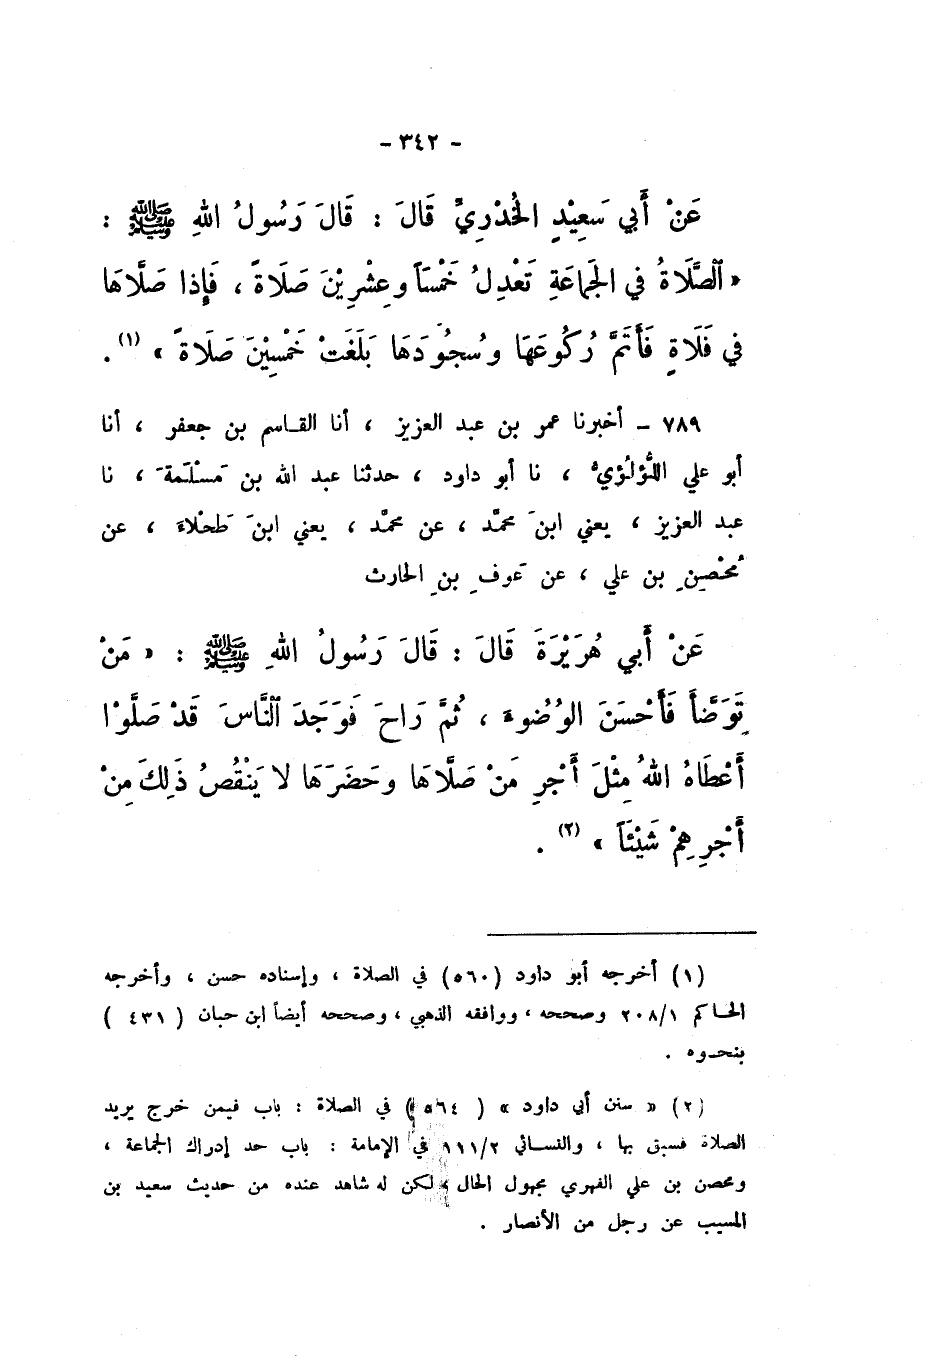 - ٣٤٢ -
عَنْ أَبي سَعِيْدٍ الخُدْرِيِّ قَالَ : قَالَ رَسُولُ اللهِ ﷺ :
« الصَّلَاةُ في الجَمَاعَةِ تَعْدِلُ خَمْسَاً وعِشْرِيْنَ صَلَاةً ، فَإِذا صَلَّاهَا
في فَلَاةٍ فَأَتَمَّ رُكُوعَهَا وسُجُودَهَا بَلَغَتْ خَمْسِيْنَ صَلَاةً » (١) .
٧٨٩ - أخبرنا عمر بن عبد العزيز ، أنا القاسم بن جعفر ، أنا
أبو علي اللُّؤْلُؤيُّ ، نا أبو داود ، حدثنا عبد الله بن مَسْلَمَةَ ، نا
عبد العزيز ، يعني ابنَ محمَّد ، عن محمَّد ، يعني ابنَ طَحْلاءَ ، عن
مُحْصِنِ بن علي ، عن عَوفِ بنِ الحارث
عَنْ أَبي هُرَيْرَةَ قَالَ : قَالَ رَسُولُ اللهِ ﷺ : « مَنْ
تَوَضَّأَ فَأَحْسَنَ الوُضُوءَ ، ثُمَّ رَاحَ فَوَجَدَ النَّاسَ قَدْ صَلَّوْا
أَعْطَاهُ اللهُ مِثْلَ أَجْرِ مَنْ صَلَّاهَا وحَضَرَهَا لا يَنْقُصُ ذَلِكَ مِنْ
أَجْرِهِمْ شَيْئَاً » (٢) .
(١) أخرجه أبو داود (٥٦٠) في الصلاة ، وإسناده حسن ، وأخرجه
الحاكم ٢٠٨/١ وصححه ، ووافقه الذهبي ، وصححه أيضاً ابن حبان ( ٤٣١ )
بنحوه .
(٢) « سنن أبي داود » ( ٥٦٤ ) في الصلاة : باب فيمن خرج يريد
الصلاة فسبق بها ، والنسائي ١١١/٢ في الإمامة : باب حد إدراك الجماعة ،
ومحصن بن علي الفهري مجهول الحال ، لكن له شاهد عنده من حديث سعيد بن
المسيب عن رجل من الأنصار .